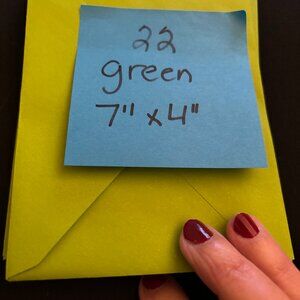 22
green
7" x 4"